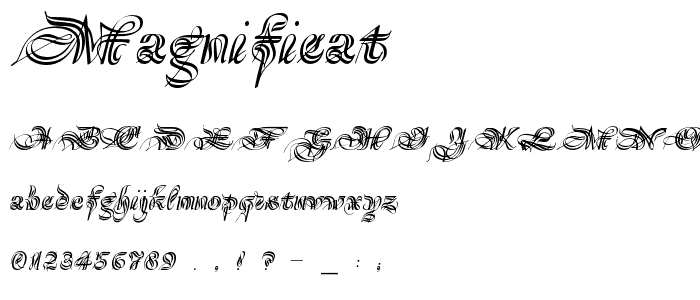 Magnificat
A B C D E F G H I J K L M N O
abcdefghijklmnopqrstuvwxyz
0123456789 . , ! ? — _ : ;